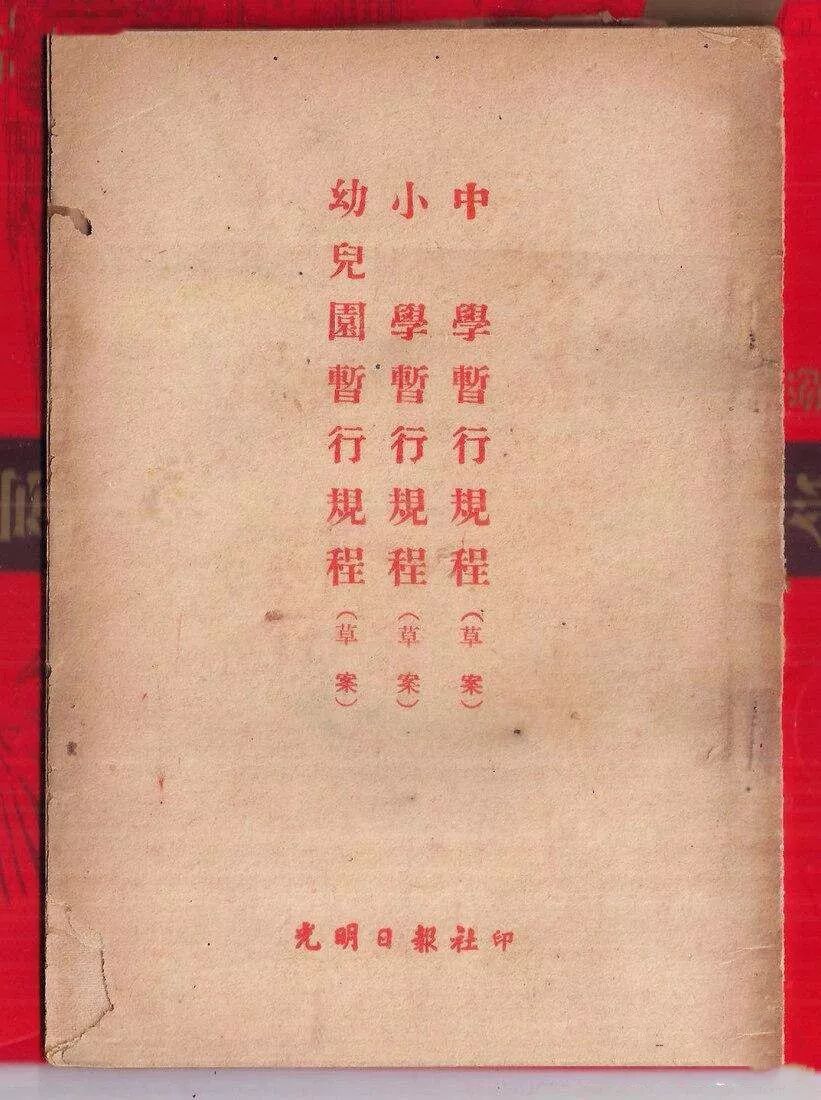 中學暫行規程（草案）
小學暫行規程（草案）
幼兒園暫行規程（草案）
光明日報社印